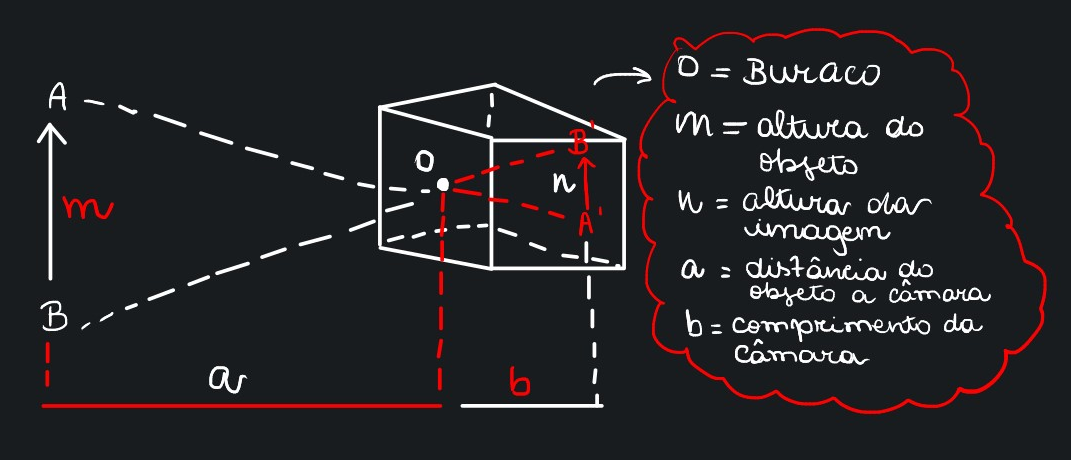 A
m
B
a
O
B'
n
A'
b
O = Buraco
m = altura do
objeto
n = altura da
imagem
a = distância do
objeto a câmara
b = comprimento da
câmara